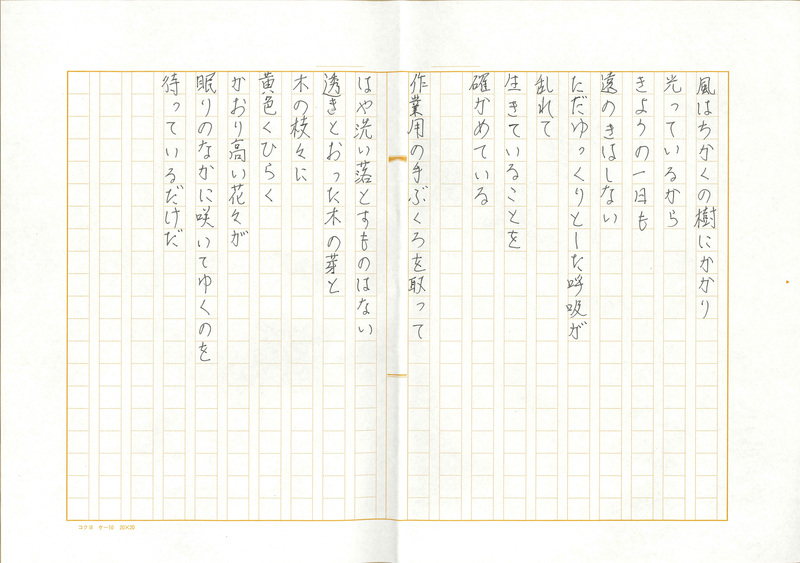 風はちかくの樹にかかり
光っているから
きょうの一日も
遠のきはしない
ただゆっくりとした呼吸が
乱れて
生きていることを
確かめている
作業用の手ぶくろを取って
はや洗い落とすものはない
透きとおった木の芽と
木の枝々に
黄色くひらく
かおり高い花々が
眠りのなかに咲いてゆくのを
待っているだけだ
コクヨ ケー10 20×20